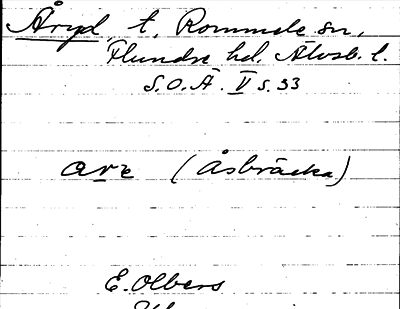 Åryd, t. Rommele sn,
Flundre hd. Älvsb. l.
S.O.Ä. II s. 33
are (Åsbräcka)
E. Olbers